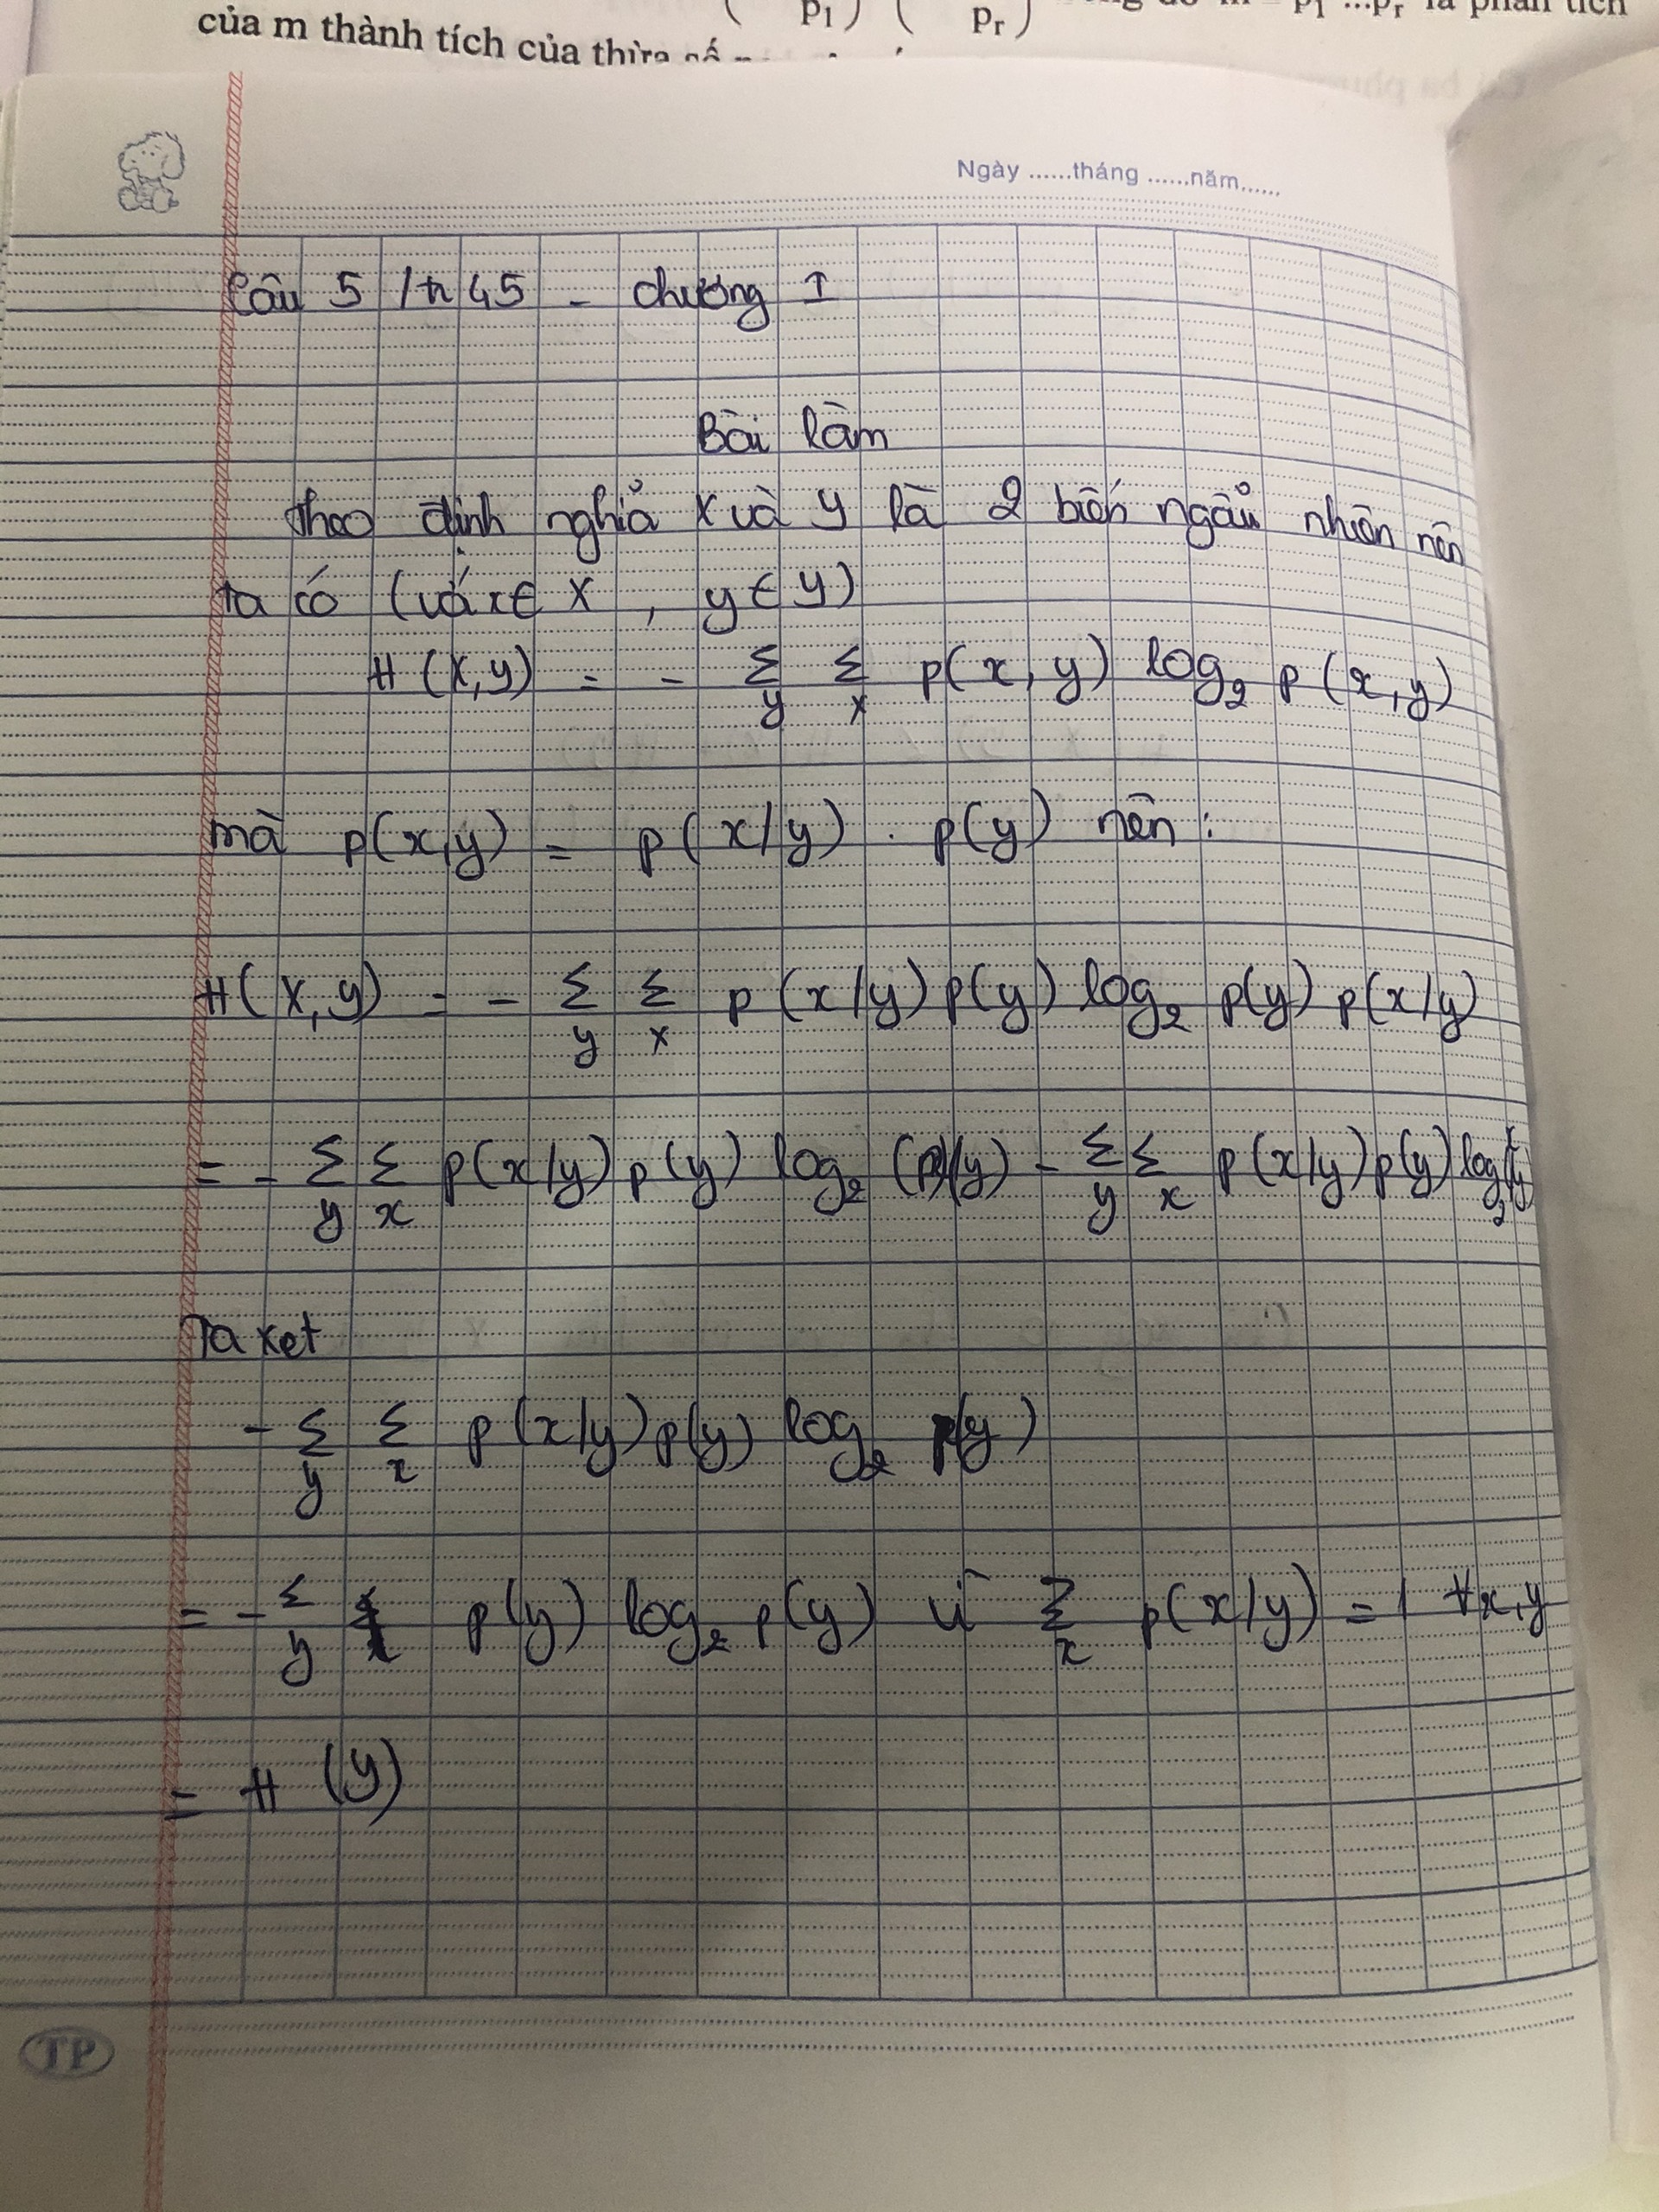 p1 ) ( pr )
của m thành tích của thừa số
Ngày ......tháng ......năm......
Câu 5 / tr 45 - chương I
Bài làm
Theo định nghĩa X và Y là 2 biến ngẫu nhiên nên
ta có (với x ∈ X , y ∈ Y)
H (X,Y) = - Σ_y Σ_x p(x,y) log₂ p(x,y)
mà p(x,y) = p(x/y) . p(y) nên :
H(X,Y) = - Σ_y Σ_x p(x/y) p(y) log₂ p(y) p(x/y)
= - Σ_y Σ_x p(x/y) p(y) log₂ (y) - Σ_y Σ_x p(x/y) p(y) log₂
Ta xet
- Σ_y Σ_x p(x/y) p(y) log₂ p(y)
= - Σ_y p(y) log₂ p(y) vì Σ_x p(x/y) = 1 ∀x,y
= H (Y)
TP